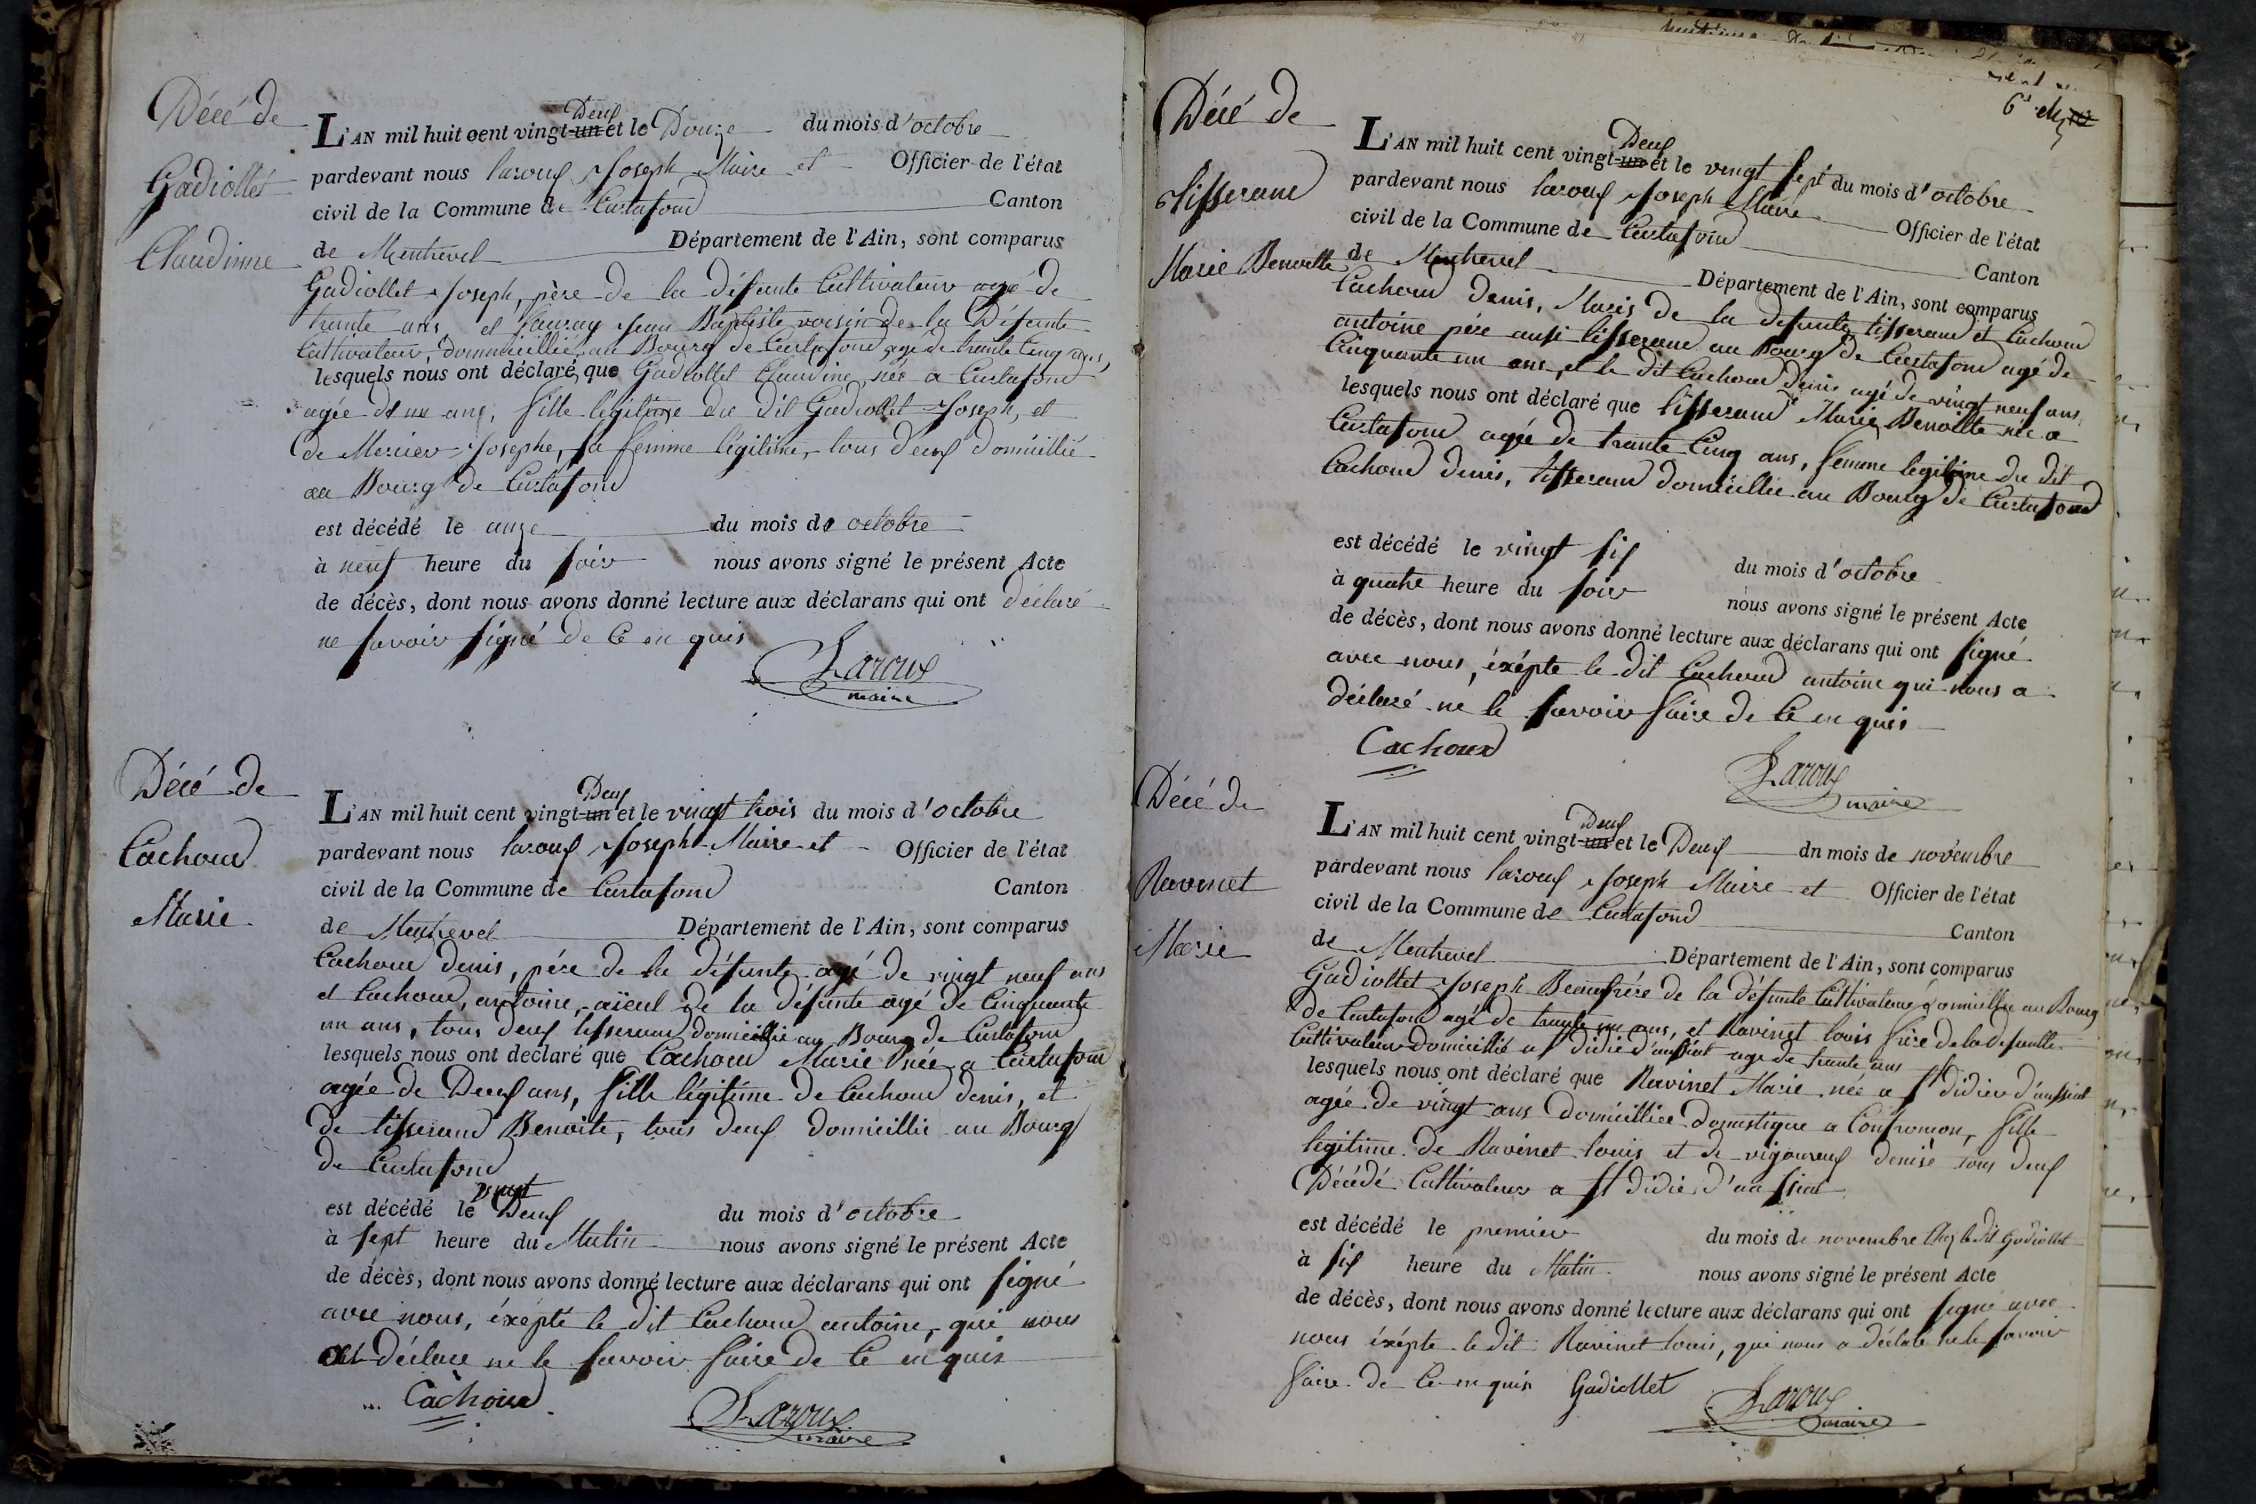 Décé de
Gadiollet
Claudinne
Deux
L'AN mil huit cent vingt-un et le Douze du mois d'octobre
pardevant nous laroux Joseph Maire et Officier de l'état
civil de la Commune de Curtafond Canton
de Montrevel Département de l'Ain, sont comparus
Gadiollet Joseph, père de la défunte Cultivateur agé de
trente ans, et Jean Baptiste voisin de la Défunte
Cultivateur, dommicillié au Bourg de Curtafond agé de trante Cinq ans,
lesquels nous ont déclaré que Gadiollet Claudine, née a Curtafond
agée d'un ans, fille legitime du dit Gadiollet Joseph, et
de Mercier Josephe, sa femme légitime, tous deux domicillié
au Bourg de Curtafond
est décédé le onze du mois de octobre
à neuf heure du soir nous avons signé le présent Acte
de décès, dont nous avons donné lecture aux déclarans qui ont déclaré
ne savoir signé de ce en quis
Laroux
maire
Décé de
Cachoud
Marie
Deux
L'AN mil huit cent vingt-un et le vingt trois du mois d'octobre
pardevant nous laroux Joseph Maire et Officier de l'état
civil de la Commune de Curtafond Canton
de Montrevel Département de l'Ain, sont comparus
Cachoud denis, pére de la défunte agé de vingt neuf ans
et Cachoud, antoine, aïeul de la défunte agé de Cinquante
un ans, tous deux tisserand domicillié au Bourg de Curtafond
lesquels nous ont declaré que Cachoud Marie née a Curtafond
agée de Deux ans, fille légitime de Cachoud denis, et
de tisserand Benoite, tous deux domicillié au Bourg
de Curtafond
vingt
est décédé le Deux du mois d'octobre
à sept heure du Matin nous avons signé le présent Acte
de décès, dont nous avons donné lecture aux déclarans qui ont signé
avec nous, éxépté le dit Cachoud antoine, qui nous
déclare ne le savoir faire de ce en quis
Cachoud
Laroux
maire
6e
Décé de
tisserand
Marie Benoitte
Deux
L'AN mil huit cent vingt-un et le vingt sept du mois d'octobre
pardevant nous laroux Joseph Maire Officier de l'état
civil de la Commune de Curtafond Canton
de Montrevel Département de l'Ain, sont comparus
Cachoud denis, Maris de la defunte, tisserand et Cachoud
antoine pére aussi tisserand au Bourg de Curtafond agé de
Cinquante un ans, et le dit Cachoud denis agé de vingt neuf ans
lesquels nous ont déclaré que tisserand Marie Benoitte née a
Curtafond agée de trante Cinq ans, femme legitime du dit
Cachoud denis, tisserand domicillié au Bourg de Curtafond
est décédé le vingt six du mois d'octobre
à quatre heure du soir nous avons signé le présent Acte
de décès, dont nous avons donné lecture aux déclarans qui ont signé
avec nous, éxépte le dit Cachoud antoine qui nous a
déclaré ne le savoir faire de ce en quis
Cachoud
Laroux
maire
Décé de
Ravinet
Marie
Deux
L'AN mil huit cent vingt-un et le Deux dn mois de novembre
pardevant nous laroux Joseph Maire et Officier de l'état
civil de la Commune de Curtafond Canton
de Montrevel Département de l'Ain, sont comparus
Gadiollet Joseph Beaufrére de la défunte Cultivateur domicillié au Bourg
de Curtafond agé de trante un ans, et Ravinet louis frère de la defunte
Cultivateur domicillié a st didié d'aussiat age de trante ans
lesquels nous ont déclaré que Ravinet Marie née a st didier d'aussiat
agée de vingt ans domicilliée domestique a Confrancon, fille
legitime de Ravinet louis et de vigoureux denise tous deux
Décédé Cultivateur a st didié d'aussiat
est décédé le premier du mois de novembre chez le dit Gadiollet
à six heure du Matin nous avons signé le présent Acte
de décès, dont nous avons donné lecture aux déclarans qui ont signé avec
nous éxépte le dit Ravinet louis, qui nous a déclaré ne le savoir
faire de ce en quis Gadiollet
Laroux
maire